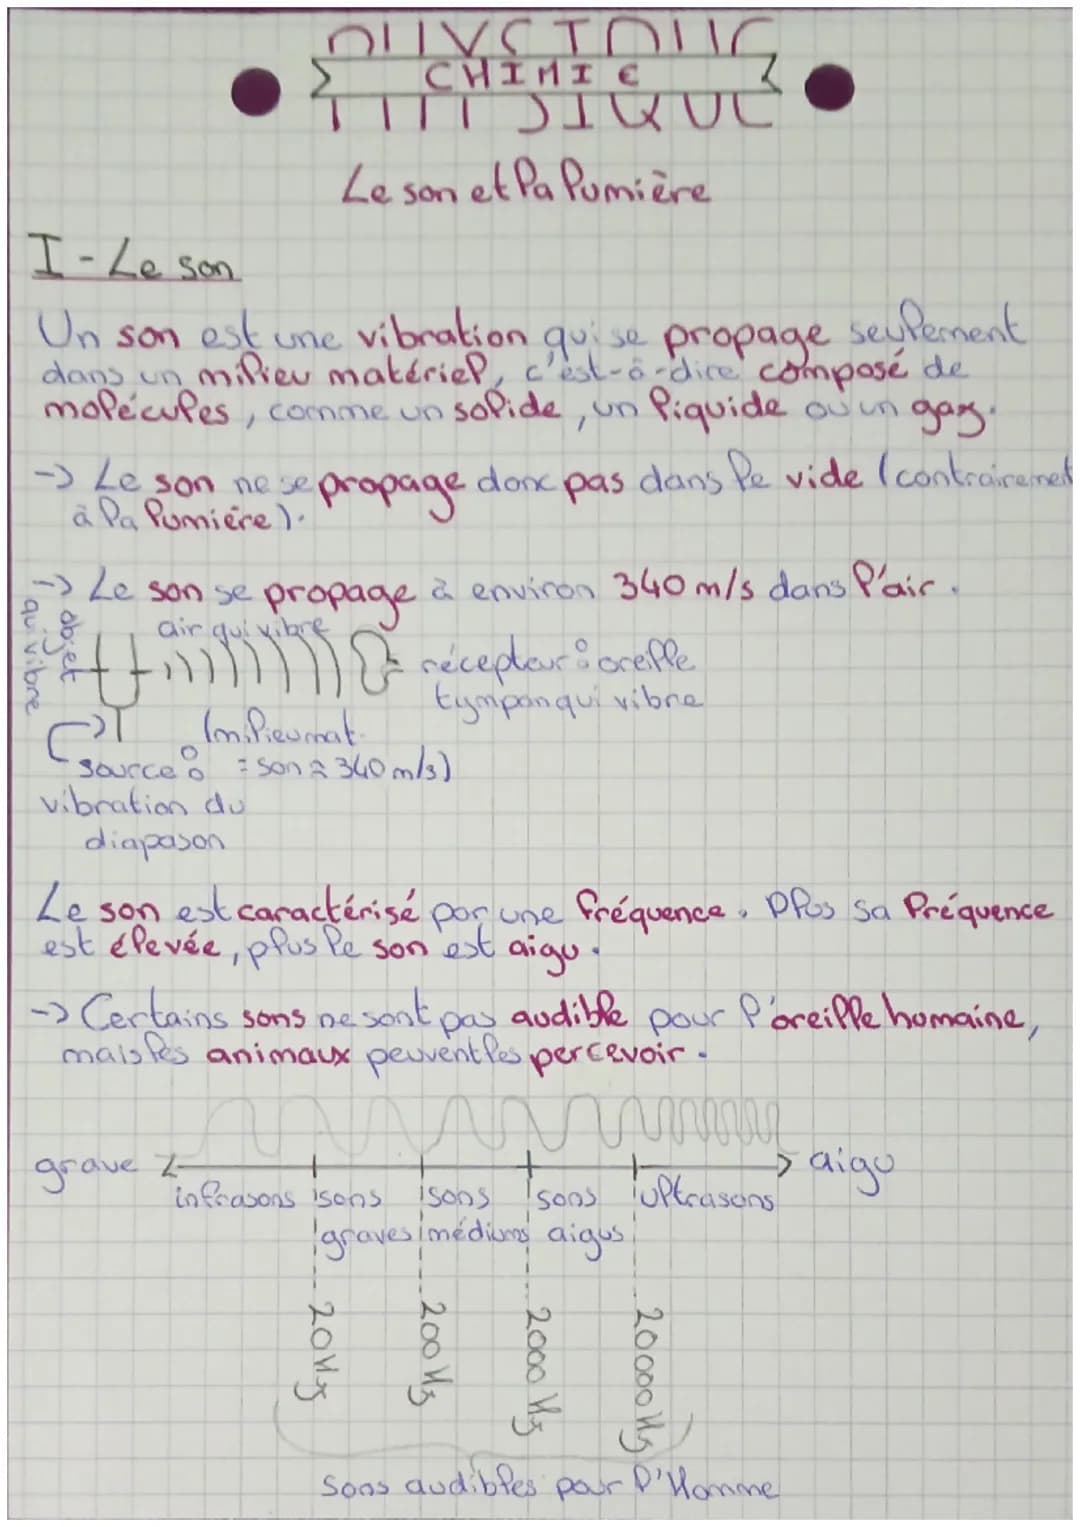 PHYSIQUE
CHIMIE
Le son et la lumière
I - Le son
Un son est une vibration qui se propage seulement
dans un milieu matériel, c'est-à-dire composé de
molécules, comme un solide, un liquide ou un gaz.
-> Le son ne se propage donc pas dans le vide (contrairement
à la lumière).
-> Le son se propage à environ 340 m/s dans l'air.
objet
qui vibre
air qui vibre
récepteur : oreille
tympan qui vibre
(milieu mat.
source : = son ≈ 340 m/s)
vibration du
diapason
Le son est caractérisé par une fréquence. Plus sa fréquence
est élevée, plus le son est aigu.
-> Certains sons ne sont pas audible pour l'oreille humaine,
mais les animaux peuvent les percevoir.
grave aigu
infrasons sons sons sons ultrasons
graves médiums aigus
20 Hz 200 Hz 2000 Hz 20000 Hz
Sons audibles pour l'Homme